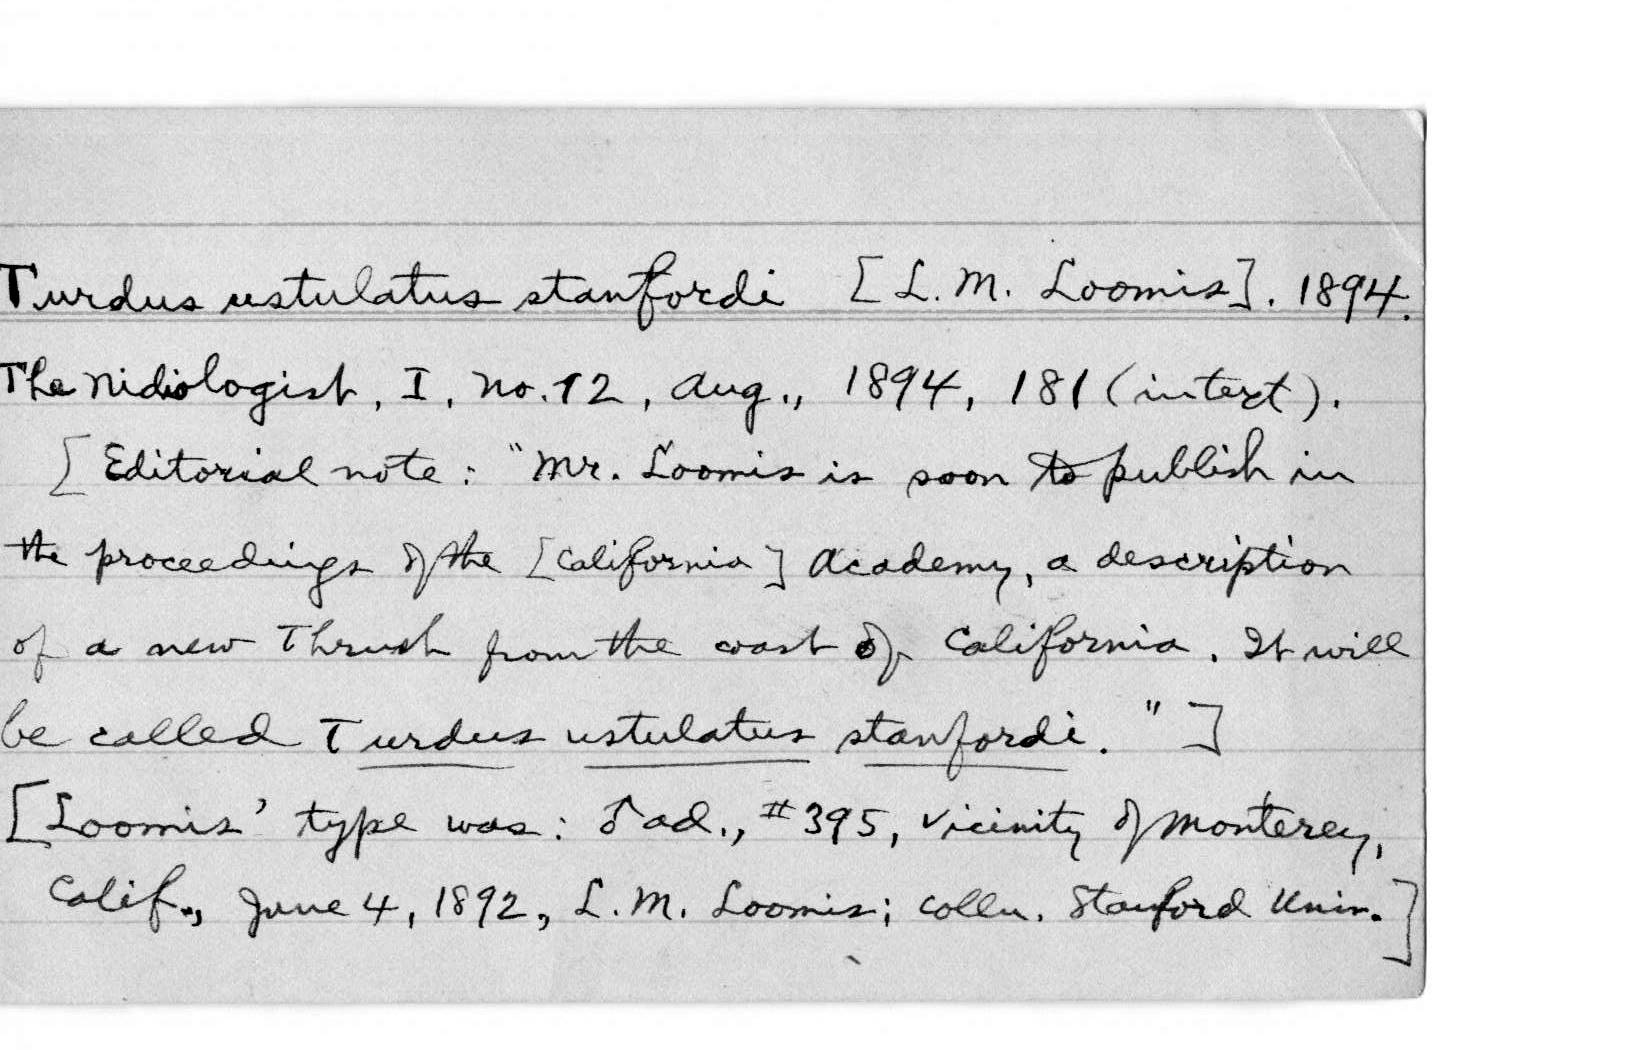 Turdus ustulatus stanfordi [L. M. Loomis]. 1894.
The Nidiologist, I, No. 12, Aug., 1894, 181 (in text).
[Editorial note: "Mr. Loomis is soon to publish in
the proceedings of the [California] Academy, a description
of a new Thrush from the coast of California. It will
be called Turdus ustulatus stanfordi."]
[Loomis' type was: ♂ ad., #395, vicinity of Monterey,
Calif., June 4, 1892, L. M. Loomis; colln. Stanford Univ.]